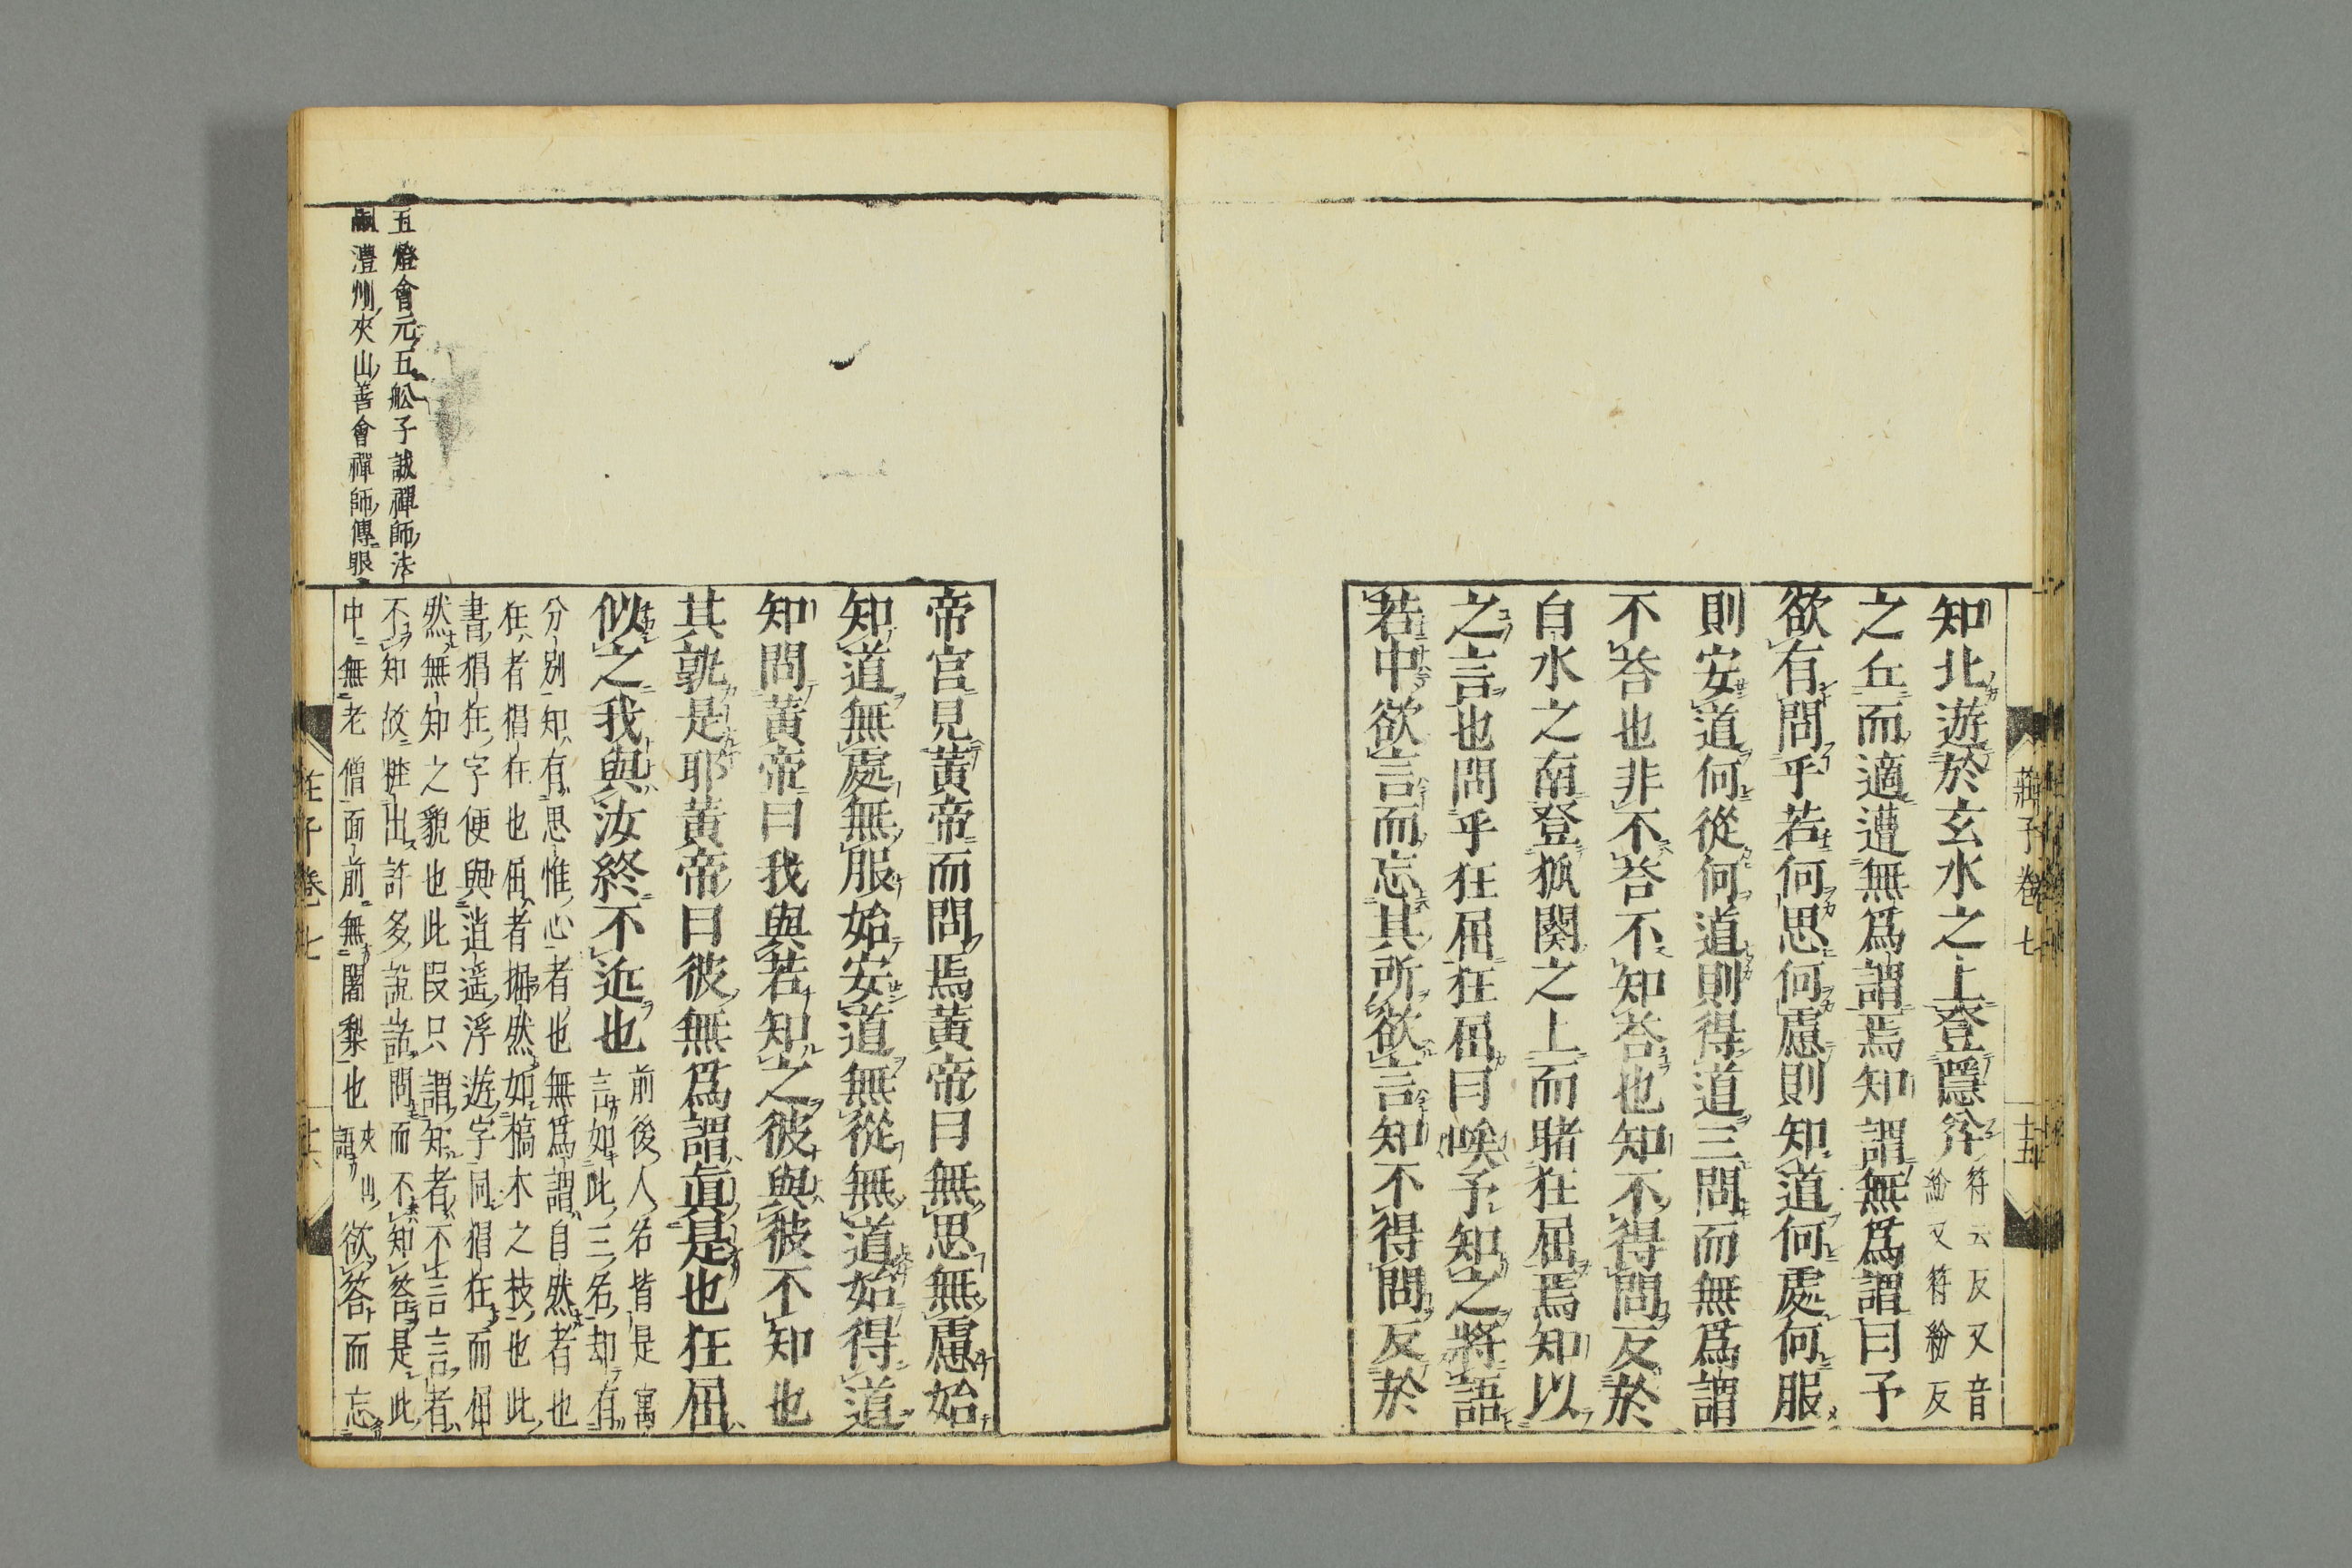 莊子卷七
十五
知北遊於玄水之上登隱弅
符云反又音
紛又符紛反
之丘而適遭無爲謂焉知謂無爲謂曰予
欲有問乎若何思何慮則知道何處何服
則安道何從何道則得道三問而無爲謂
不荅也非不荅不知荅也知不得問反於
白水之南登狐闋之上而睹狂屈焉知以
之言也問乎狂屈狂屈曰唉予知之將語
若中欲言而忘其所欲言知不得問反於
帝宮見黄帝而問焉黄帝曰無思無慮始
知道無處無服始安道無從無道始得道
知問黄帝曰我與若知之彼與彼不知也
其孰是耶黄帝曰彼無爲謂眞是也狂屈
似之我與汝終不近也
前後人名皆是寓
言如此三名却有
分別知有思惟心者也無爲謂自然者也
狂者猖狂也屈者掘然如槁木之枝也此
書猖狂字便與逍遥浮遊字同猖狂而屈
然無知之貌也此段只謂知者不言言者
不知故粧出許多說話問而不知荅是此
中無老僧面前無闍黎也
夾山
語
欲荅而忘
五燈會元五舩子誠禪師法
嗣澧州夾山善會禪師傳眼
莊子卷七
十六